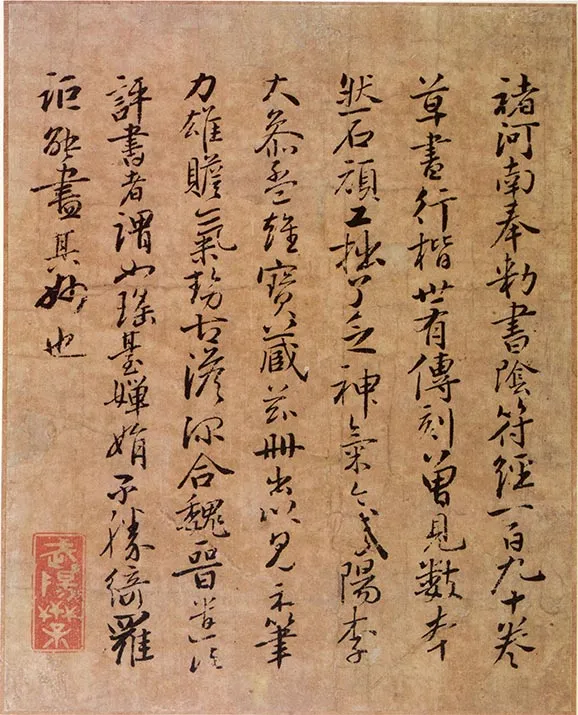 褚河南奉勅書陰符經一百九十卷
草行楷世有傳刻曾見數本
然石頑工拙了乏神氣今武陽李
大參孟雄寶藏茲冊出以見示筆
力雄贍氣韵古澹深合魏晉遺法
評書者謂如瑤臺嬋娟不勝綺羅
詎能盡其妙也